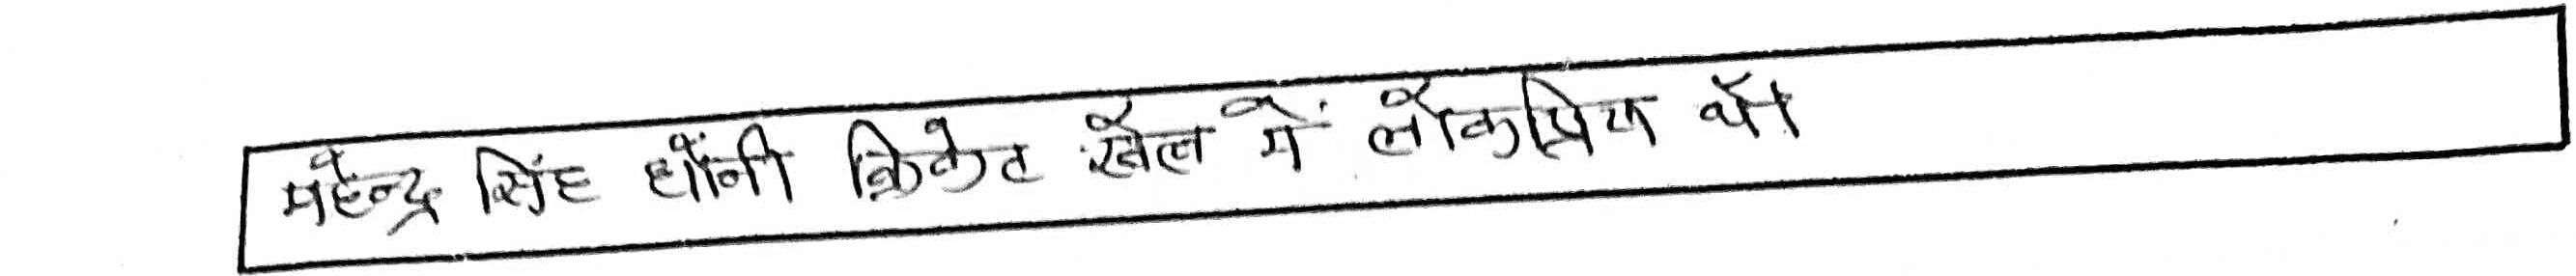 महेन्द्र सिंह धोंनी क्रिकेट खेल में लोकप्रिय थे।